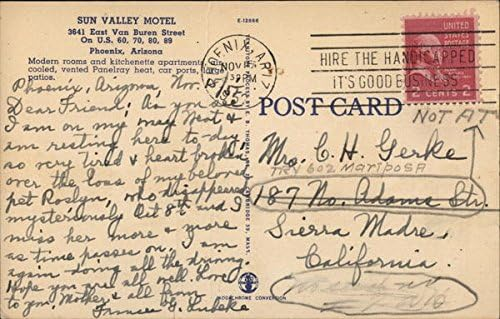 SUN VALLEY MOTEL
3641 East Van Buren Street
On U.S. 60, 70, 80, 89
Phoenix, Arizona
Modern rooms and kitchenette apartments,
cooled, vented Panelray heat, car ports,
patios.
E-12866
Phoenix, Arizona, Nov.
Dear Friend: As you see
I am on my way West &
am resting here to-day
so very tired & heart broken
over the loss of my beloved
pet Roslyn, who disappeared
mysteriously Oct 8th and I
miss her more & more
as time passes on. I am
again doing all the driving
Hope you are all well. Love
to you, Mother & all from
PHOENIX, ARIZ.
NOV
PM
HIRE THE HANDICAPPED
IT'S GOOD BUSINESS
UNITED
STATES
POSTAGE
2 CENTS 2
POST CARD
NOT AT
Mrs. C. H. Gerke
TRY 602 MARIPOSA
187 No. Adams Str.
Sierra Madre,
California.